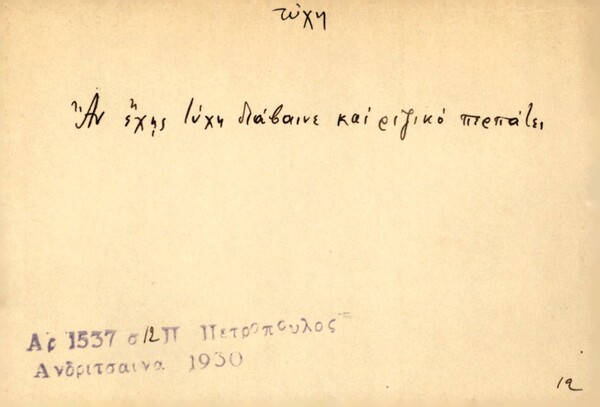 τύχη
Ἂν ἔχῃς τύχη διάβαινε καί ριζικό περπάτει
Αρ 1537 σ 12 Π Πετροπουλος
Ανδριτσαινα 1930
12